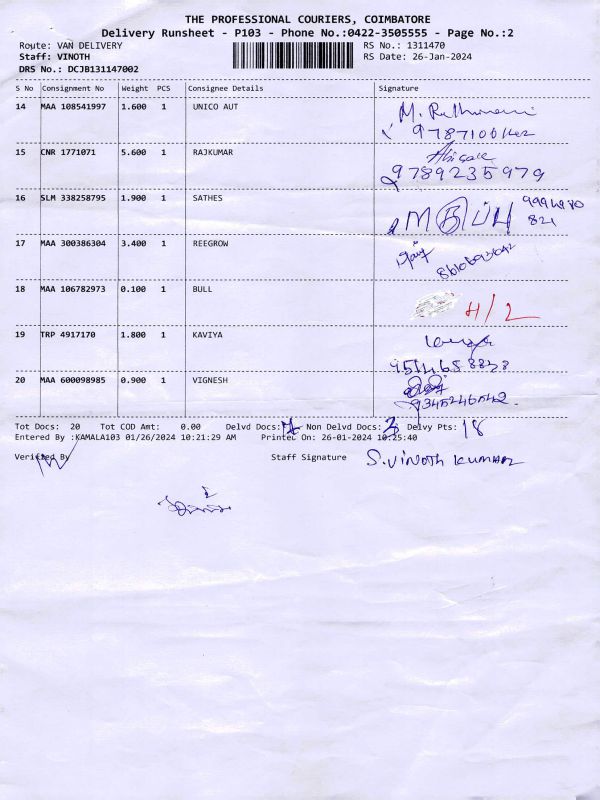 THE PROFESSIONAL COURIERS, COIMBATORE
Delivery Runsheet - P103 - Phone No.:0422-3505555 - Page No.:2
Route: VAN DELIVERY RS No.: 1311470
Staff: VINOTH RS Date: 26-Jan-2024
DRS No.: DCJB131147002
S No Consignment No Weight PCS Consignee Details Signature
14 MAA 108541997 1.600 1 UNICO AUT
15 CNR 1771071 5.600 1 RAJKUMAR
9789235979
16 SLM 338258795 1.900 1 SATHES
17 MAA 300386304 3.400 1 REEGROW
18 MAA 106782973 0.100 1 BULL H/2
19 TRP 4917170 1.800 1 KAVIYA
20 MAA 600098985 0.900 1 VIGNESH
Tot Docs: 20 Tot COD Amt: 0.00 Delvd Docs: Non Delvd Docs: Delvy Pts: 18
Entered By :KAMALA103 01/26/2024 10:21:29 AM Printed On: 26-01-2024 10:25:40
Verified By Staff Signature S.VINOTH KUMAR